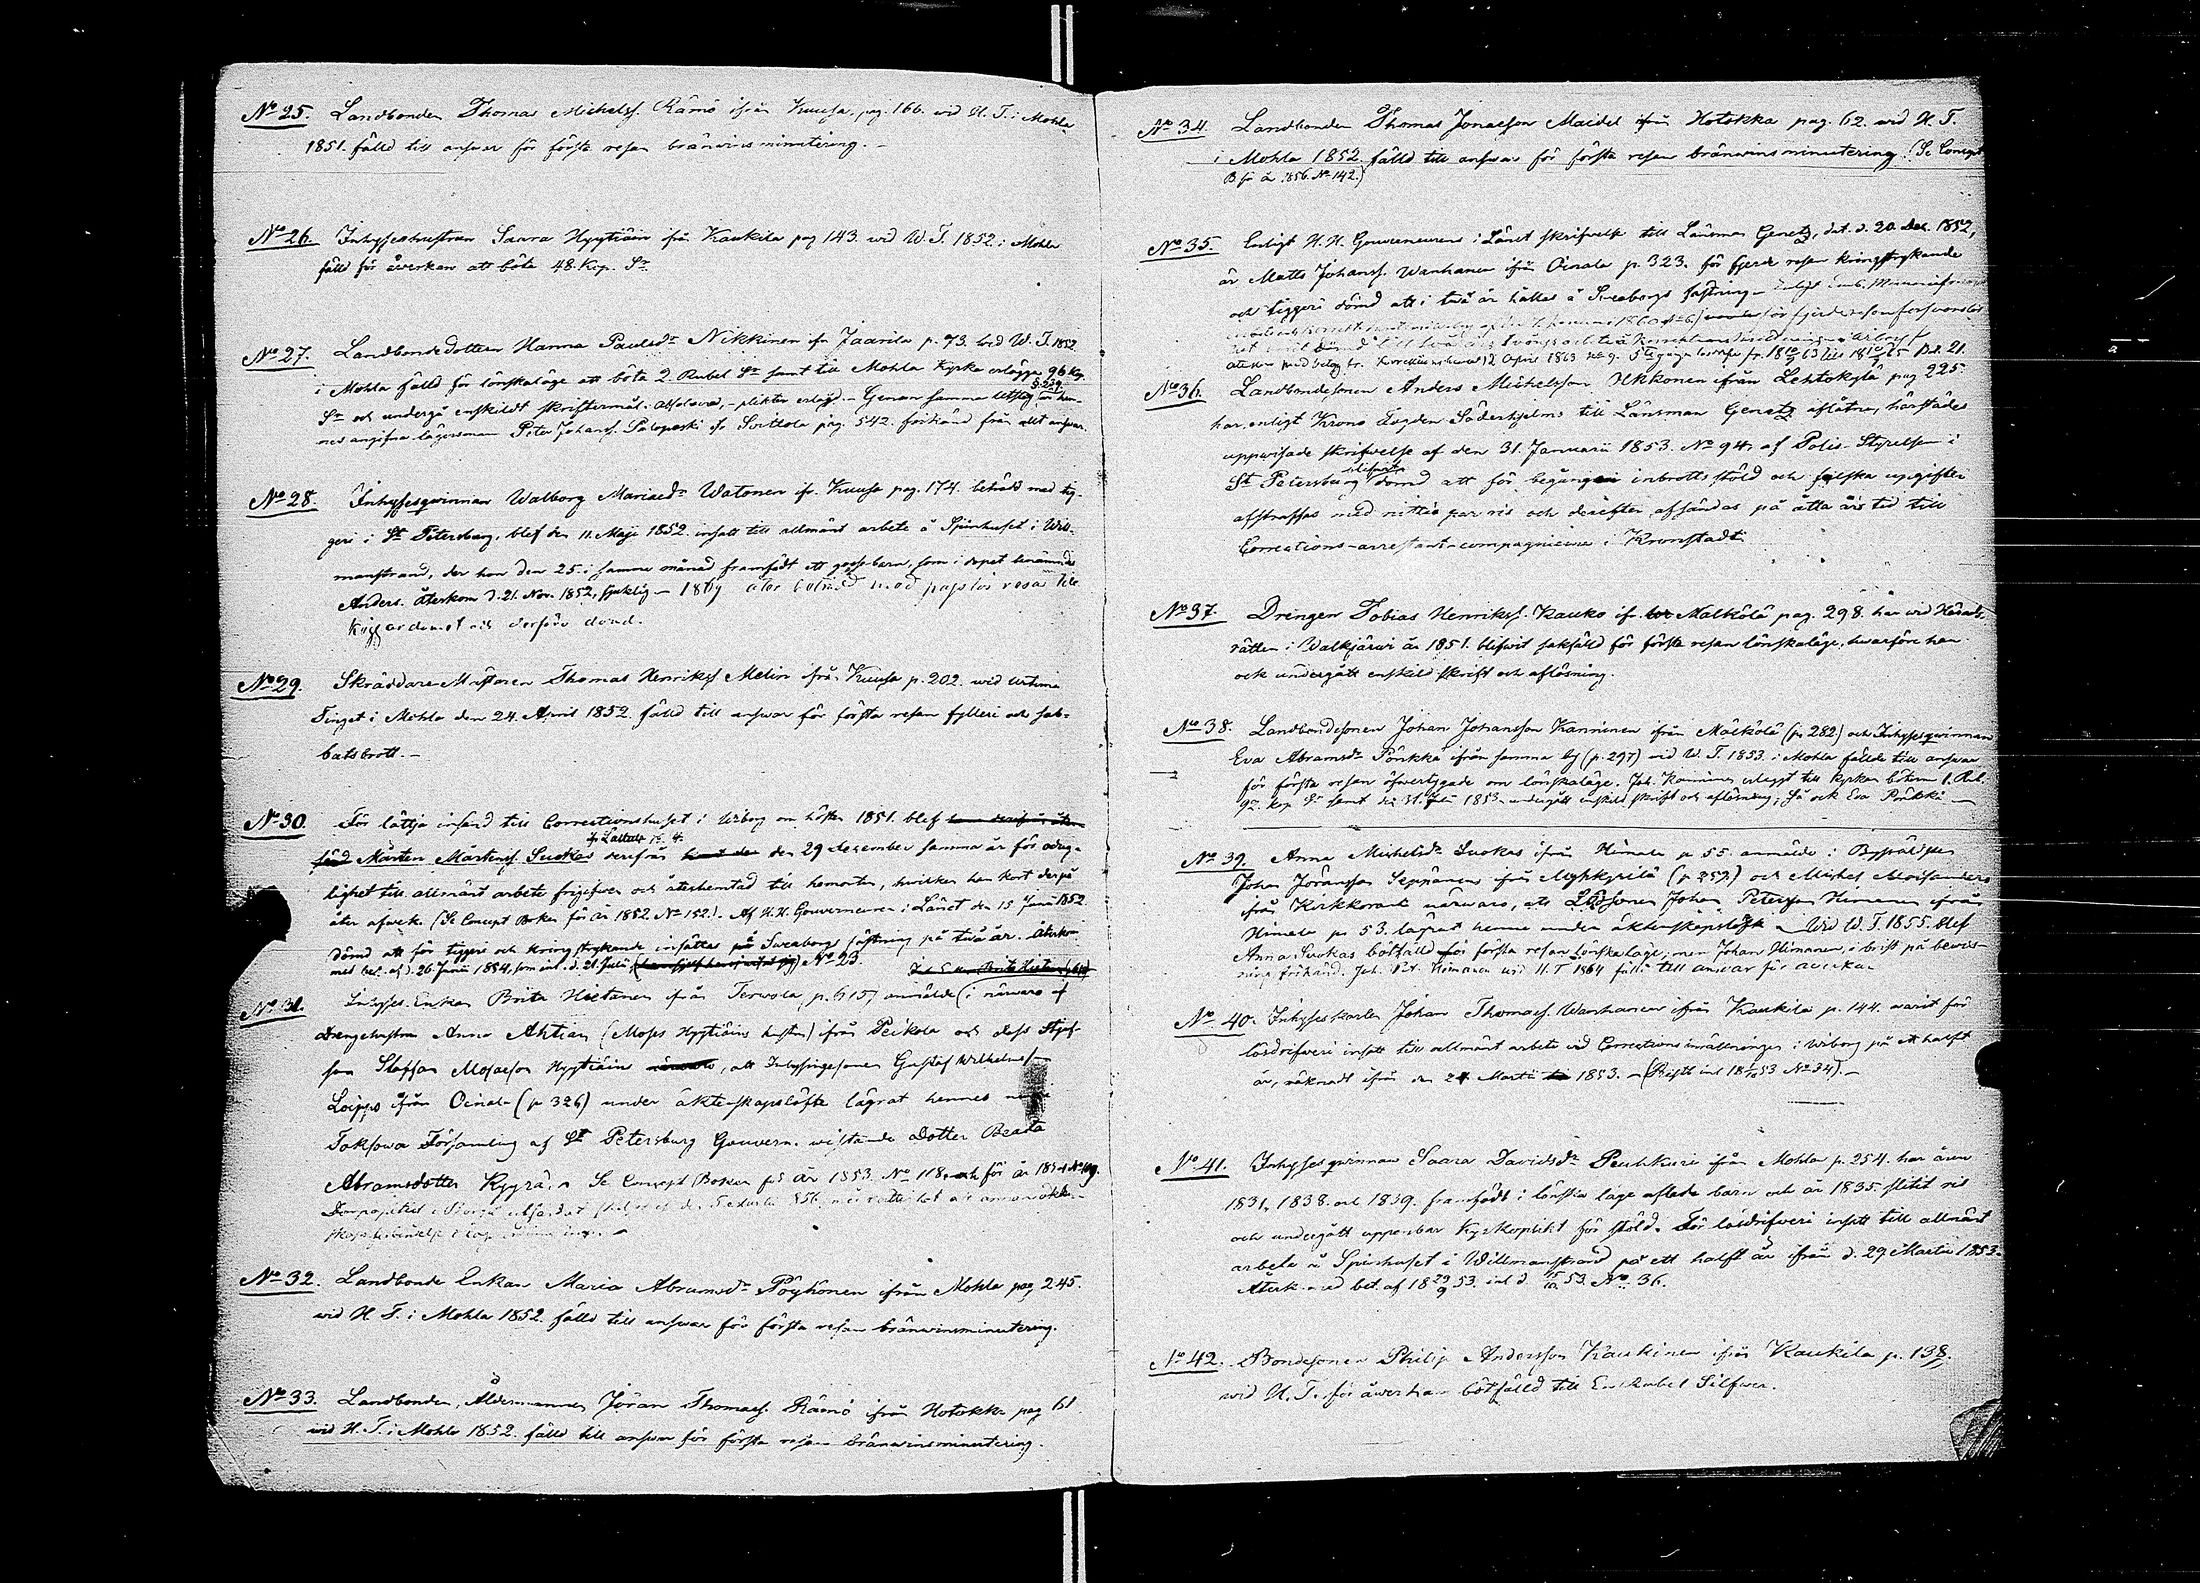 No 25. Landbonden Thomas Michelss. Rämö ifrån Kuusa, pag. 166. wid H. T. i Mohla
1851. fälld till answar för första resan bränwinsminutering. -
No 26. Inhyseshustrun Saara Hyytiäin ifrån Kaukila pag 143. wid W. T. 1852. i Mohla
fälld för åwerkan att böta 48. Kop. Sr
No 27. Landbondedottern Hanna Paulsdr Nikkinen ifr. Jaarila p. 73. wid W. T. 1852
i Mohla fälld för lönskaläge att böta 2. Rubel Sr samt till Mohla Kyrka erlägga 96 kop.
Sr och undergå enskildt skriftermål. Absolverad, - plikten erlagd. - Genom samma
nes angifna lägersman Peter Johanss. Palopaski ifr Suittola pag. 542. frikänd från allt answar.
No 28. Inhysesqwinnan Walborg Mariaedr Watonen ifr. Kuusa pag. 174. beträdd med tig-
geri i St Petersburg, blef den 11. Maji 1852. insatt till allmänt arbete å Spinhuset i Will-
manstrand, der hon den 25. i samma månad framfödt ett gosse-barn, som i dopet benämndes
Anders. Återkom d. 21. Nov. 1852, sjuklig - 1869 åter beträdd med passlös resa till
Kejsardömet och derföre dömd.
No 29. Skräddare Mästaren Thomas Henrikss Melin ifrån Kuusa p. 202. wid Urtima
Tinget i Mohla den 24. April 1852. fälld till answar för första resan fylleri och sab-
batsbrott. -
No 30. För lättja insänd till Correctionshuset i Wiborg om hösten 1851. blef
Mårten Mårtenss. Suokas derifrån den 29 december samma år för odug-
lighet till allmänt arbete frigifwen och återhemtad till hemorten, hwilken han kort derpå
åter afwek. (Se Concept Boken för år 1852. No 152.). Af H. H. Gouverneuren i Länet den 15 Junii 1852
dömd att för tiggeri och kringstrykande insättas på Sweaborgs fästning på twå år. Återkom
med bet. af d. 26. Junii 1854, som inl. d. 21. Julii No 23.
No 31. Inhyses Enkan Brita Hietanen ifrån Terwola, p. 615, anmälde (i närwaro af
Drengehustrun Anna Ahtiain (Moses Hyytiäins hustru) ifrån Peikola och dess Styf-
son Staffan Mosesson Hyytiäin, att Inhysingesonen Gustaf Wilhelmss
Loippo ifrån Oinala (p 326) under äktenskapslöfte lägrat hennes
Toksowa Församling af St Petersburg Gouvern. wistande Dotter Beata
Abramsdotter Kyyrä. Se Concept Boken för år 1853. No 118, och för år 1854 No 119.
No 32. Landbonde Enkan Maria Abramsdr Pöyhönen ifrån Mohla pag 245.
wid H. T. i Mohla 1852. fälld till answar för första resan bränwinsminutering.
No 33. Landbonden, Åldermannen Jöran Thomass. Rämö ifrån Hotokka pag 61
wid H. T. i Mohla 1852. fälld till answar för första resan bränwinsminutering.
No 34. Landbonden Thomas Jonasson Maidel ifrån Hotokka pag. 62. wid H. T.
i Mohla 1852. fälld till answar för första resan bränwinsminutering. (Se Concept
B för år 1856. No 142.)
No 35. Enligt H. H. Gouverneurens i Länet skrifwelse till Länsman Genetz, dat. d. 20 Dec. 1852,
är Matts Johanss. Wanhanen ifrån Oinala p. 323. för fjerde resan kringstrykande
och tiggeri dömd att i twå år hållas å Sweaborgs fästning -
No 36. Landbondesonen Anders Michelsson Ukkonen ifrån Lehtokylä pag 225.
har, enligt Krono Fogden Söderhjelms till Länsman Genetz aflåtna, härstädes
uppwisade skrifwelse af den 31. Januarii 1853. No 94. af Polis-Styrelsen i
St Petersburg blifwit dömd att för begången inbrottsstöld och falska uppgifter
afstraffas med nittio par ris och derefter afsändas på åtta års tid till
Corrections-arrestant-compagnierne i Kronstadt.
No 37. Drengen Tobias Henrikss. Kauko ifr. Mälkölä pag. 298. har wid Härads-
rätten i Walkjärwi år 1851. blifwit sakfälld för första resan lönskaläge, hwarföre han
ock undergått enskild skrift och aflösning.
No 38. Landbondesonen Johan Johansson Kanninen ifrån Mälkölä (p. 282.) och Inhysesqwinnan
Eva Abramsdr Pönkkä ifrån samma by (p. 297) wid W. T. 1853. i Mohla fällde till answar
för första resan öfwertygade om lönskaläge. Joh. Kanninen erlagt till kyrkan böterne 1. Rub.
92. kop Sr samt den 31. Juli 1853. undergått enskild skrift och aflösning, så ock Eva Pönkkä -
No 39. Anna Michelsdr Suokas ifrån Himala p 55. anmälde i Byställsten
Johan Jöransson Seppänen från Myhkyrilä (p 257.) och Michel Moisanders
ifrån Kirkkoranta närwaro, att Ldbsonen Johan Petersson Himanen ifrån
Himala p. 53. lägrat henne under äktenskapslöfte. - Wid W. T. 1855. blef
Anna Suokas bötfälld för första resan lönskaläge; men Johan Himanen, i brist på bewis-
ning frikänd. Joh. Himanen wid H. T 1864 fälld till answar för åwerkan
No 40. Inhyseskarlen Johan Thomass. Wanhanen ifrån Kaukila p. 144. warit för
lösdrifweri insatt till allmänt arbete wid Corrections inrättningen i Wiborg på ett halft
år, räknadt ifrån den 24 Martii 1853. -
No 41. Inhysesqwinnan Saara Davidsdr Peuhkuri ifrån Mohla p. 254. har åren
1831, 1838. och 1839. framfödt i lönska läge aflade barn och år 1835. slitit ris
och undergått uppenbar Kyrkoplikt för stöld. För lösdrifweri insatt till allmänt
arbete å Spinhuset i Willmanstrand på ett halft år ifrån d. 29. Martii 1853.
Återk. med bet. af 18 29/9 53. inl. d. 15/10 53. No 36.
No 42. Bondesonen Philip Andersson Kaukinen ifrån Kaukila p. 138.
wid H. T. för åwerkan bötfälld till En Rubel Silfwer.